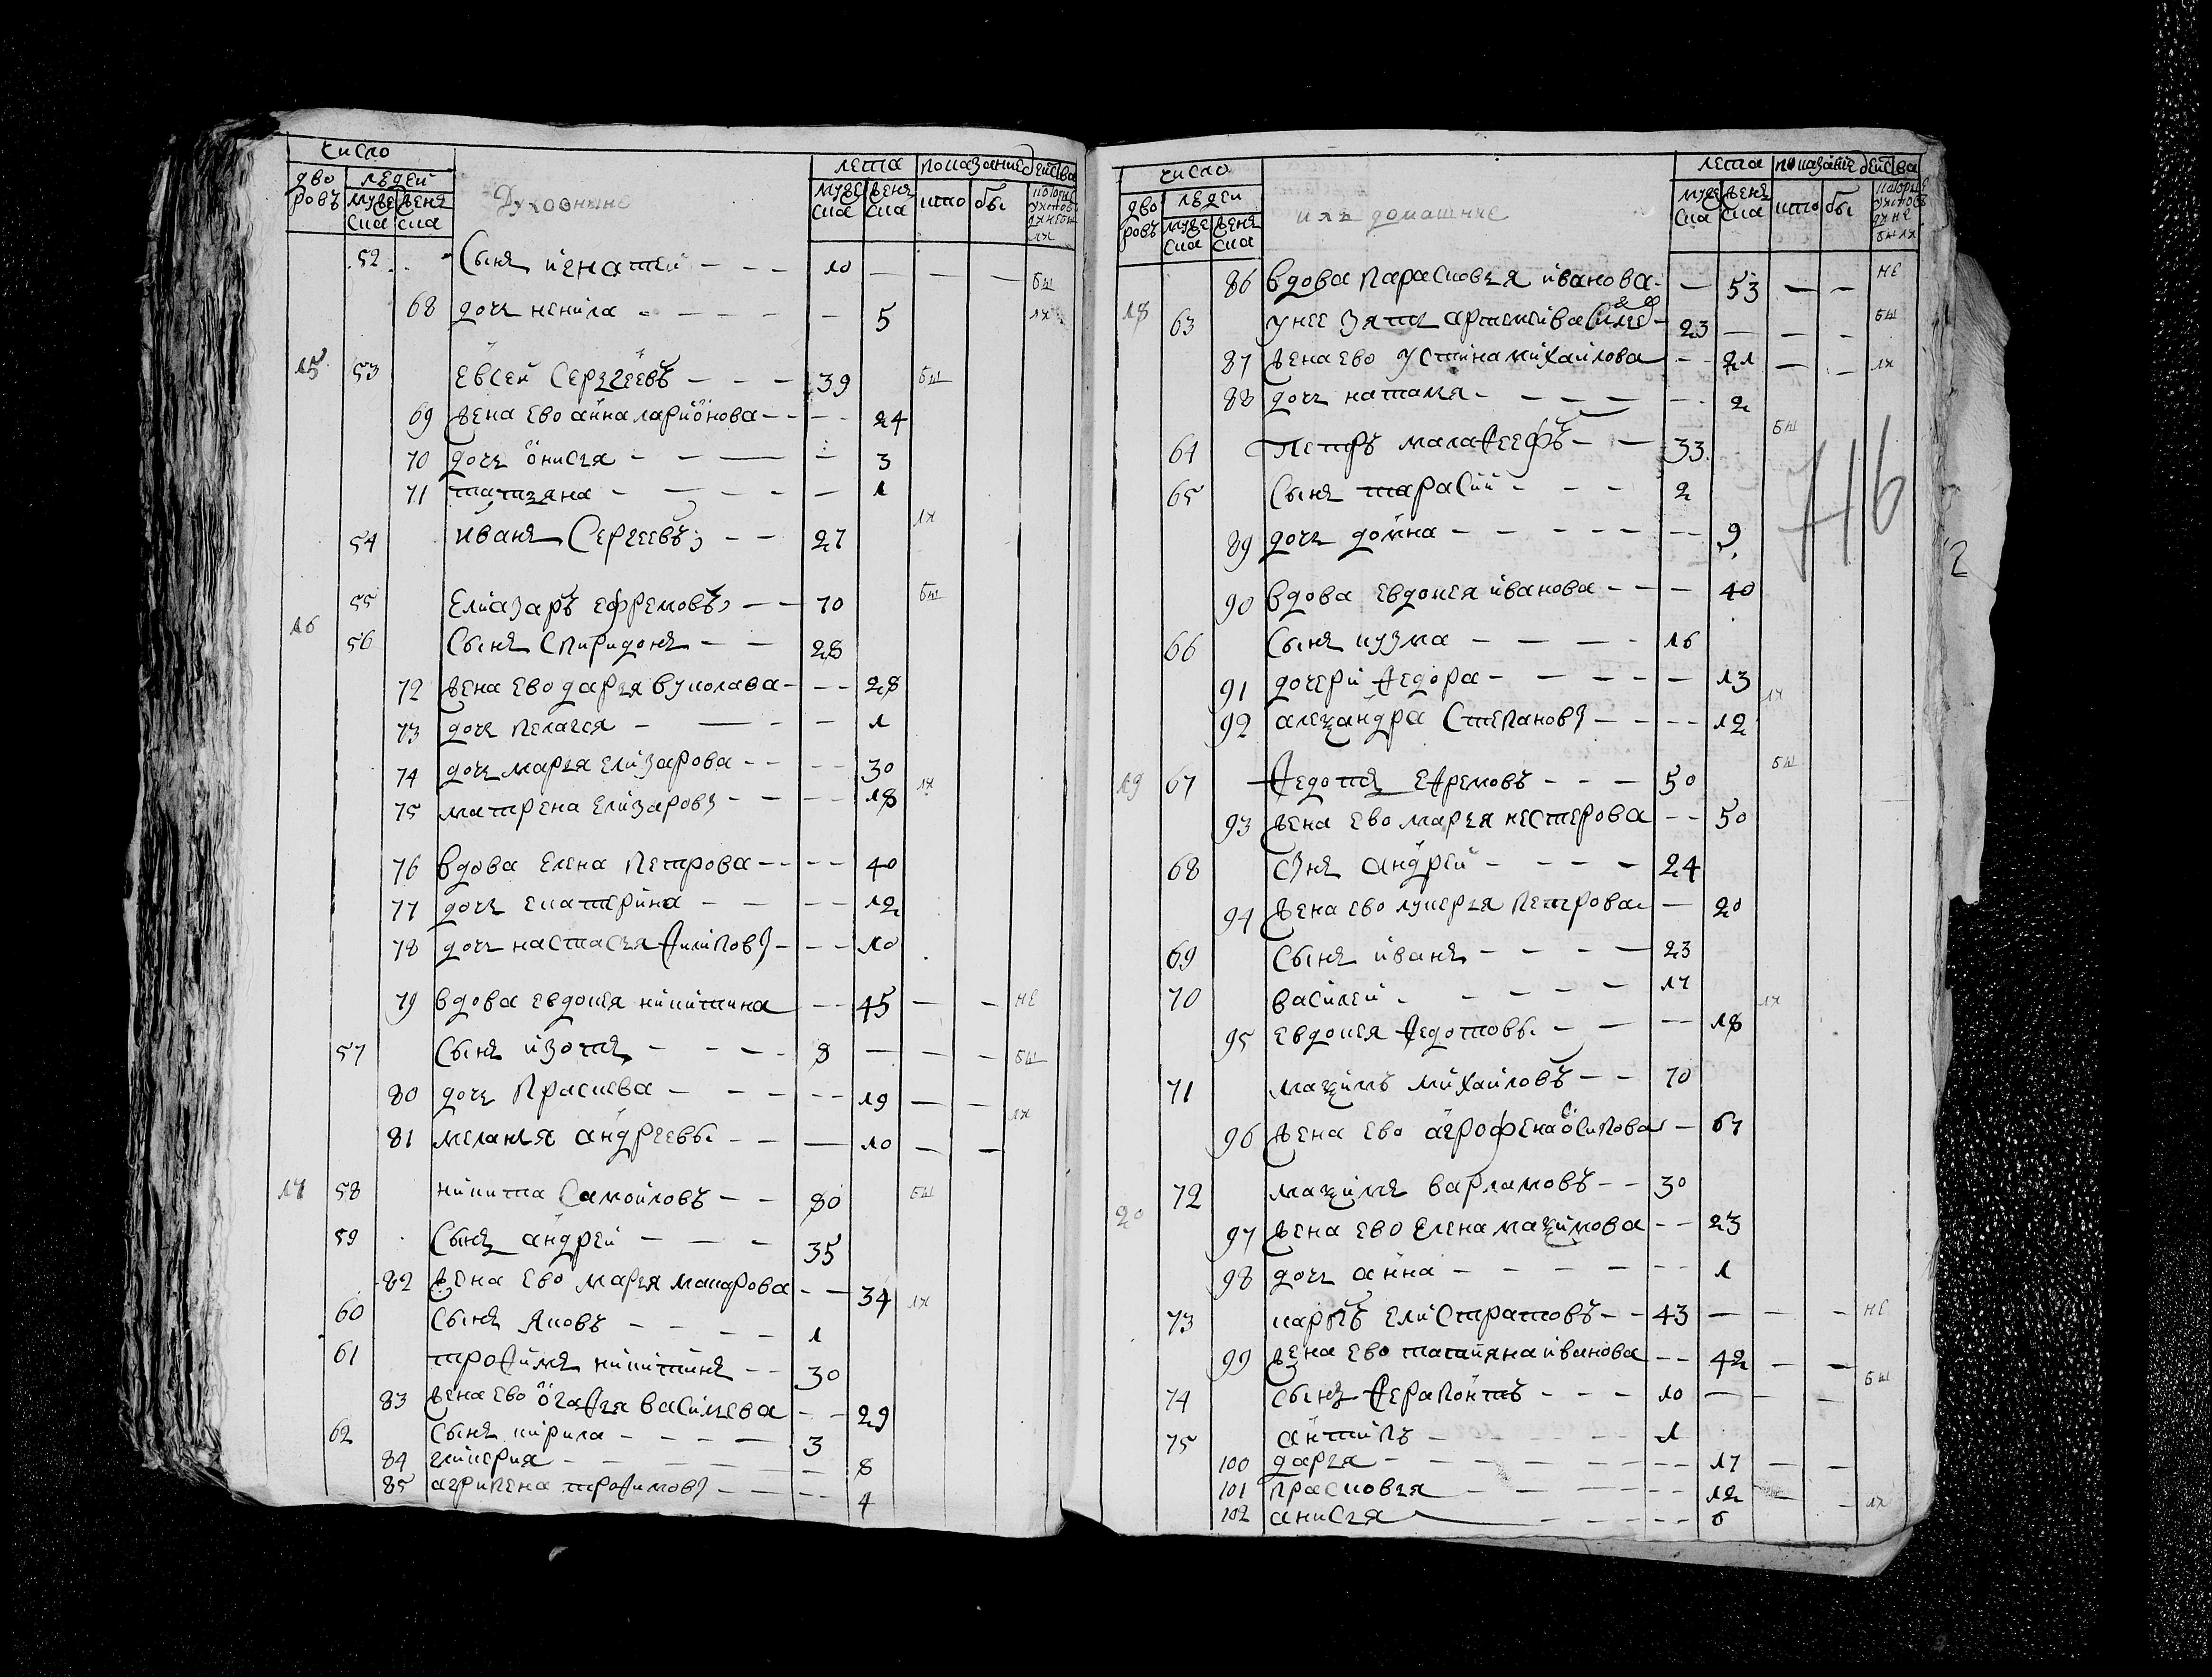 число
дворовъ
людей
мужеска
женска
Духовныя
лета
мужеска
женска
показание действа
кто
бы
52 Сынъ игнатей 10 бы
68 дочь ненила 5 ли
15 53 евсей Сергеевъ 39 бы
69 жена ево анна ларионова 24
70 дочь онисья 3
71 татьяна 1
54 иванъ Сергеевъ 27 ли
16 55 Елиазаръ ефремовъ 70 бы
56 Сынъ Спиридонъ 28
72 жена ево дарья вуколава 28
73 дочь пелагея 1
74 дочь марья елизарова 30
75 матрена елизаровы 18 ли
76 вдова елена петрова 40
77 дочь екатерина 12
78 дочь настасья филиповы 10
79 вдова евдокея никитина 45 не
57 Сынъ изотъ 8 бы
80 дочь праскева 19
81 меланья андреевы 10 ли
17 58 никита Самойловъ 80 бы
59 Сынъ андрей 35
82 жена ево марья макарова 34 ли
60 Сынъ яковъ 1
61 трофимъ никитинъ 30
83 жена ево огафья васильева 29
62 Сынъ кирила 3
84 гликерия 8
85 агрипена трофимовы 4
число
дворовъ
людей
мужеска
женска
ихъ домашние
лета
мужеска
женска
показание действа
кто
бы
86 вдова парасковья иванова 53 не
18 63 у нее зять артемей василев 23 бы
87 жена ево устина михаилова 21 ли
88 дочь наталя 2
64 петръ малафеефъ 33 бы
65 Сынъ тарасий 2
89 дочь домна 9
90 вдова евдокея иванова 40
66 Сынъ кузма 16
91 дочери федора 13
92 алеѯандра Степановы 12 ли
19 67 федотъ ефремовъ 50 бы
93 жена ево марья нестерова 50
68 сынъ андрей 24
94 жена ево лукерья петрова 20
69 Сынъ иванъ 23
70 василей 17
95 евдокея федотовы 18 ли
71 маѯимъ михаиловъ 70
96 жена ево агрофена осипова 67
20 72 маѯимъ варламовъ 30
97 жена ево елена маѯимова 23
98 дочь анна 1
73 карпъ елистратовъ 43 не
99 жена ево татияна иванова 42
74 сынъ ферапонтъ 10 бы
75 антипъ 1
100 дарья 17
101 прасковья 12
102 анисья 6 ли
716